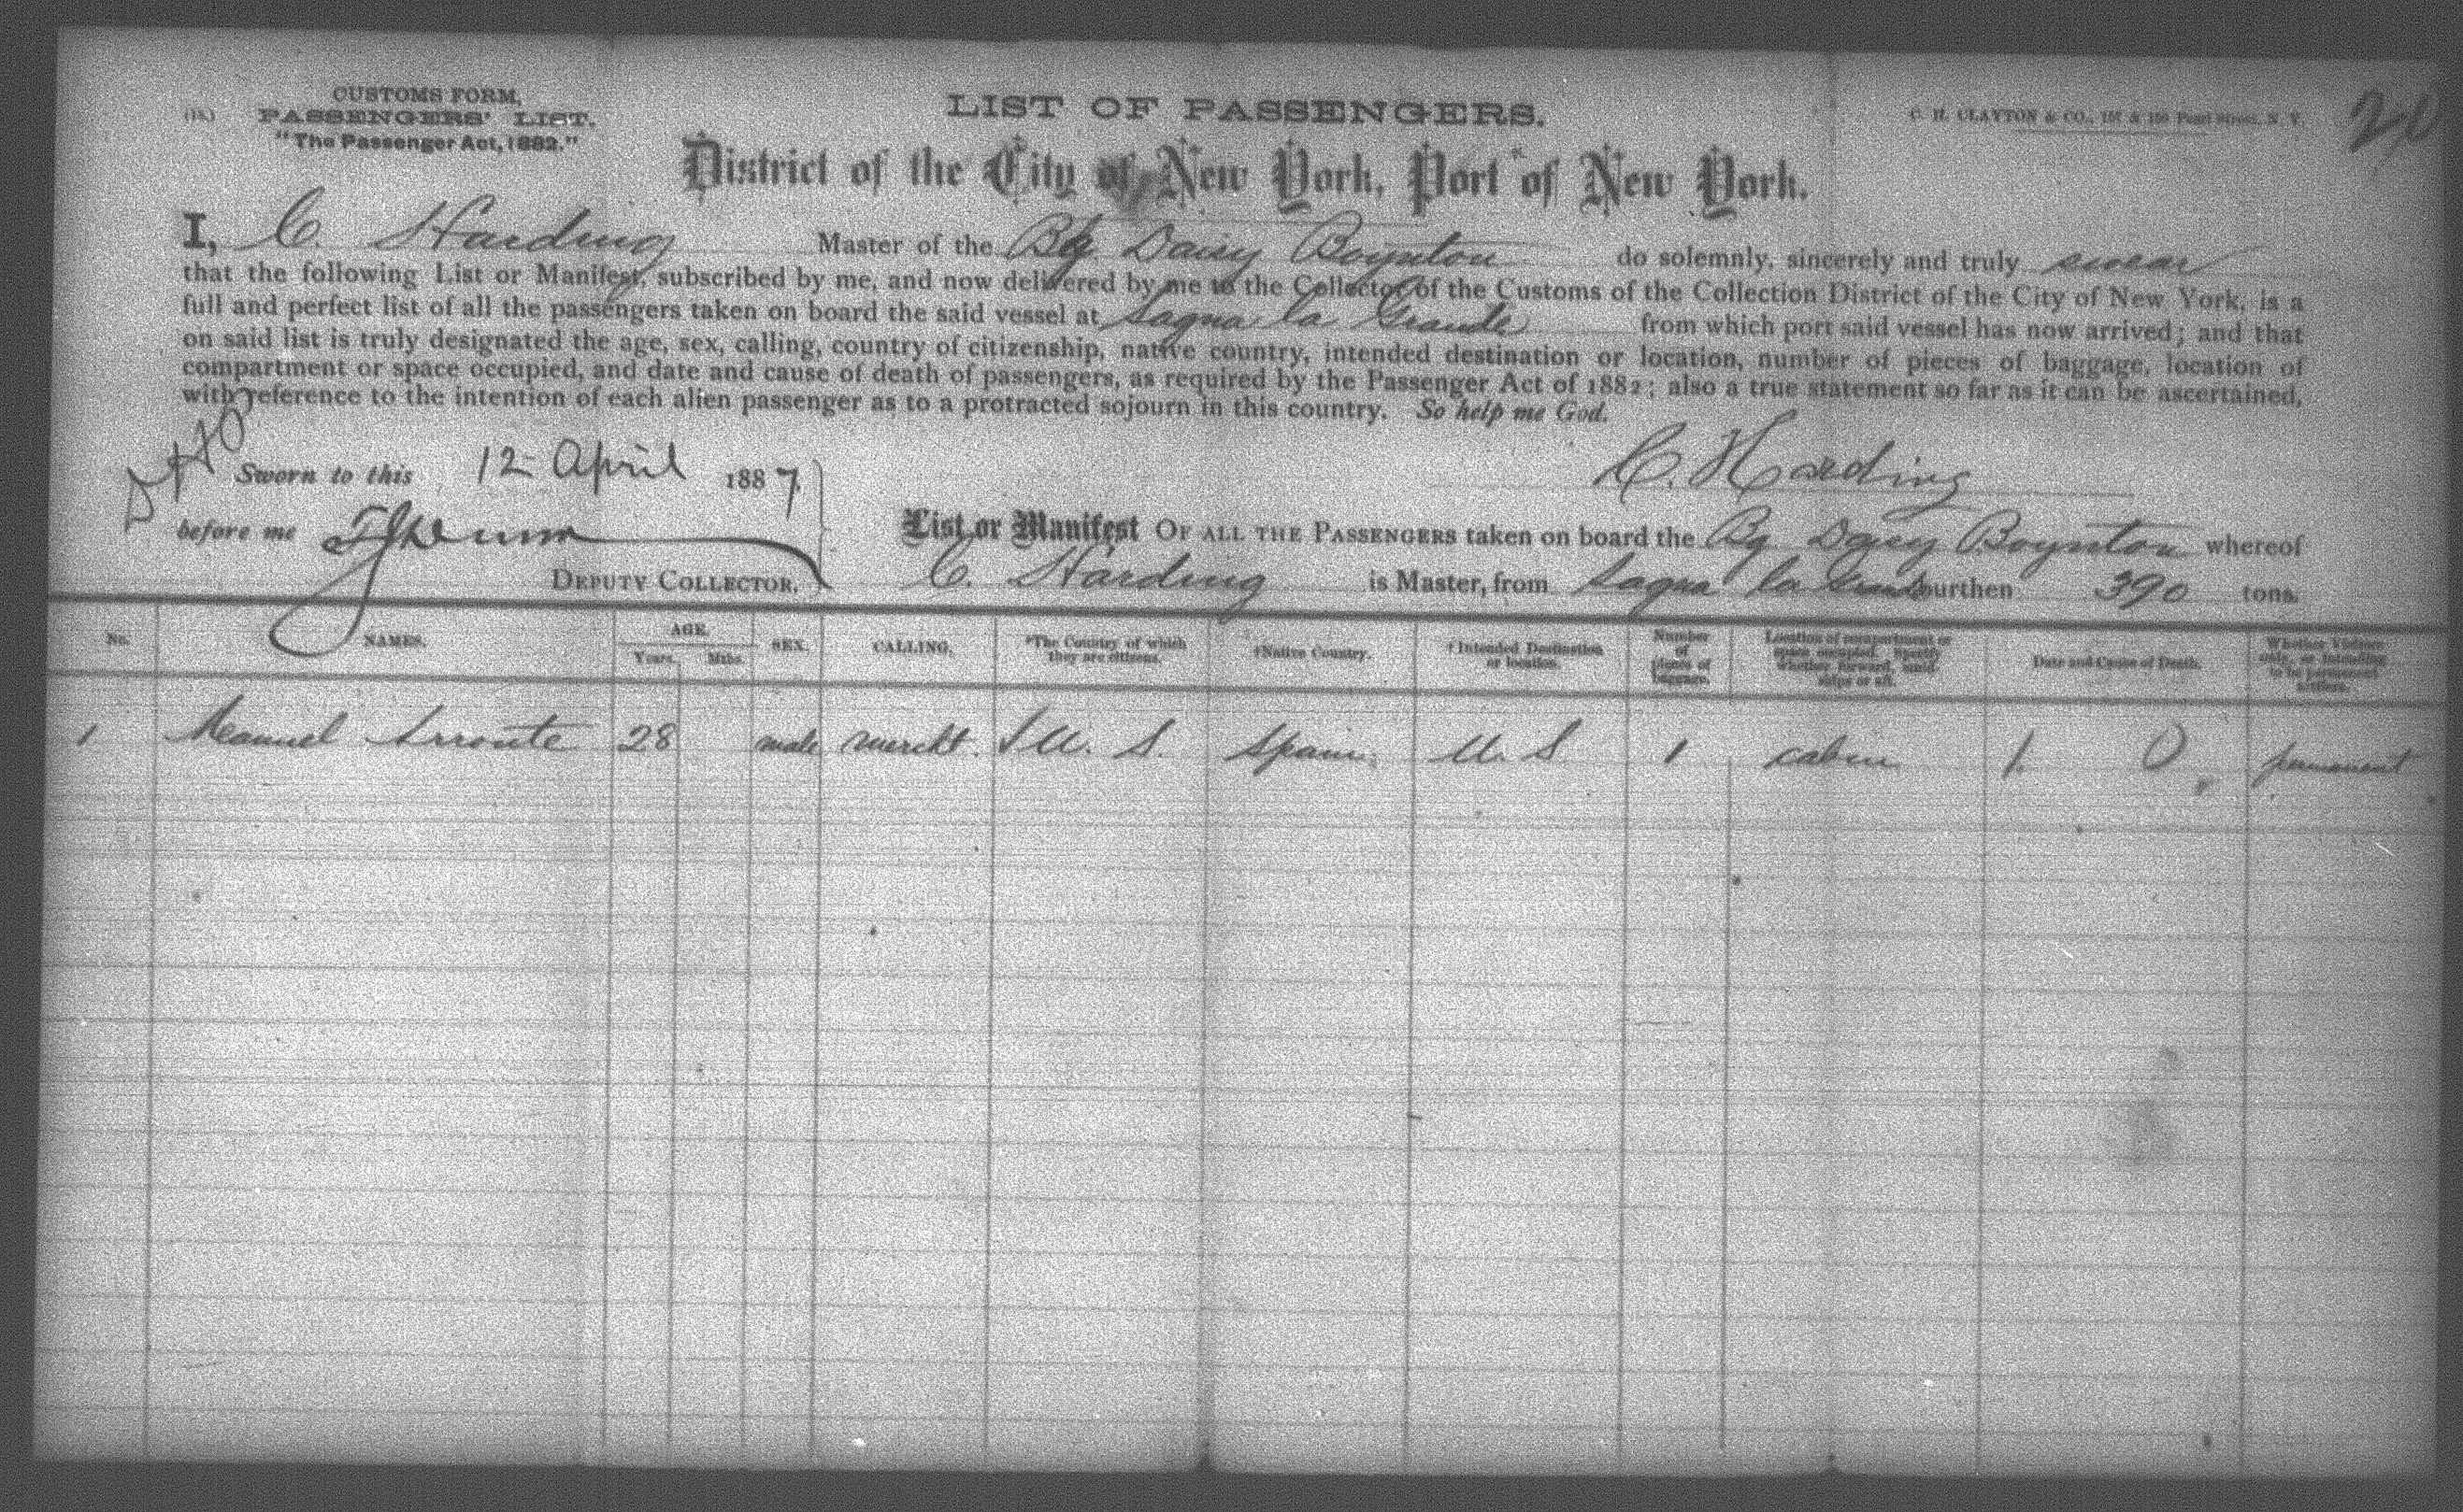 CUSTOMS FORM,
PASSENGERS' LIST.
"The Passenger Act, 1882."
LIST OF PASSENGERS.
C. H. CLAYTON & CO., 157 & 159 Pearl Street, N. Y.
20
District of the City of New York, Port of New York.
I, C. Harding Master of the Bg Daisy Boynton do solemnly, sincerely and truly swear
that the following List or Manifest, subscribed by me, and now delivered by me to the Collector of the Customs of the Collection District of the City of New York, is a
full and perfect list of all the passengers taken on board the said vessel at Sagua la Grande from which port said vessel has now arrived; and that
on said list is truly designated the age, sex, calling, country of citizenship, native country, intended destination or location, number of pieces of baggage, location of
compartment or space occupied, and date and cause of death of passengers, as required by the Passenger Act of 1882; also a true statement so far as it can be ascertained,
with reference to the intention of each alien passenger as to a protracted sojourn in this country. So help me God.
Sworn to this 12 April 1887.
C. Harding
before me
DEPUTY COLLECTOR.
List or Manifest OF ALL THE PASSENGERS taken on board the Bg Daisy Boynton whereof
C. Harding is Master, from Sagua la Grande burthen 390 tons.
No. NAMES. AGE. Years. Mths. SEX. CALLING. *The Country of which they are citizens. †Native Country. †Intended Destination or location. Number of pieces of baggage. Location of compartment or space occupied. Specify whether forward, amidships or aft. Date and Cause of Death.
1 Manuel Arronte 28 male mercht. U. S. Spain U. S. 1 cabin 1. 0 permanent